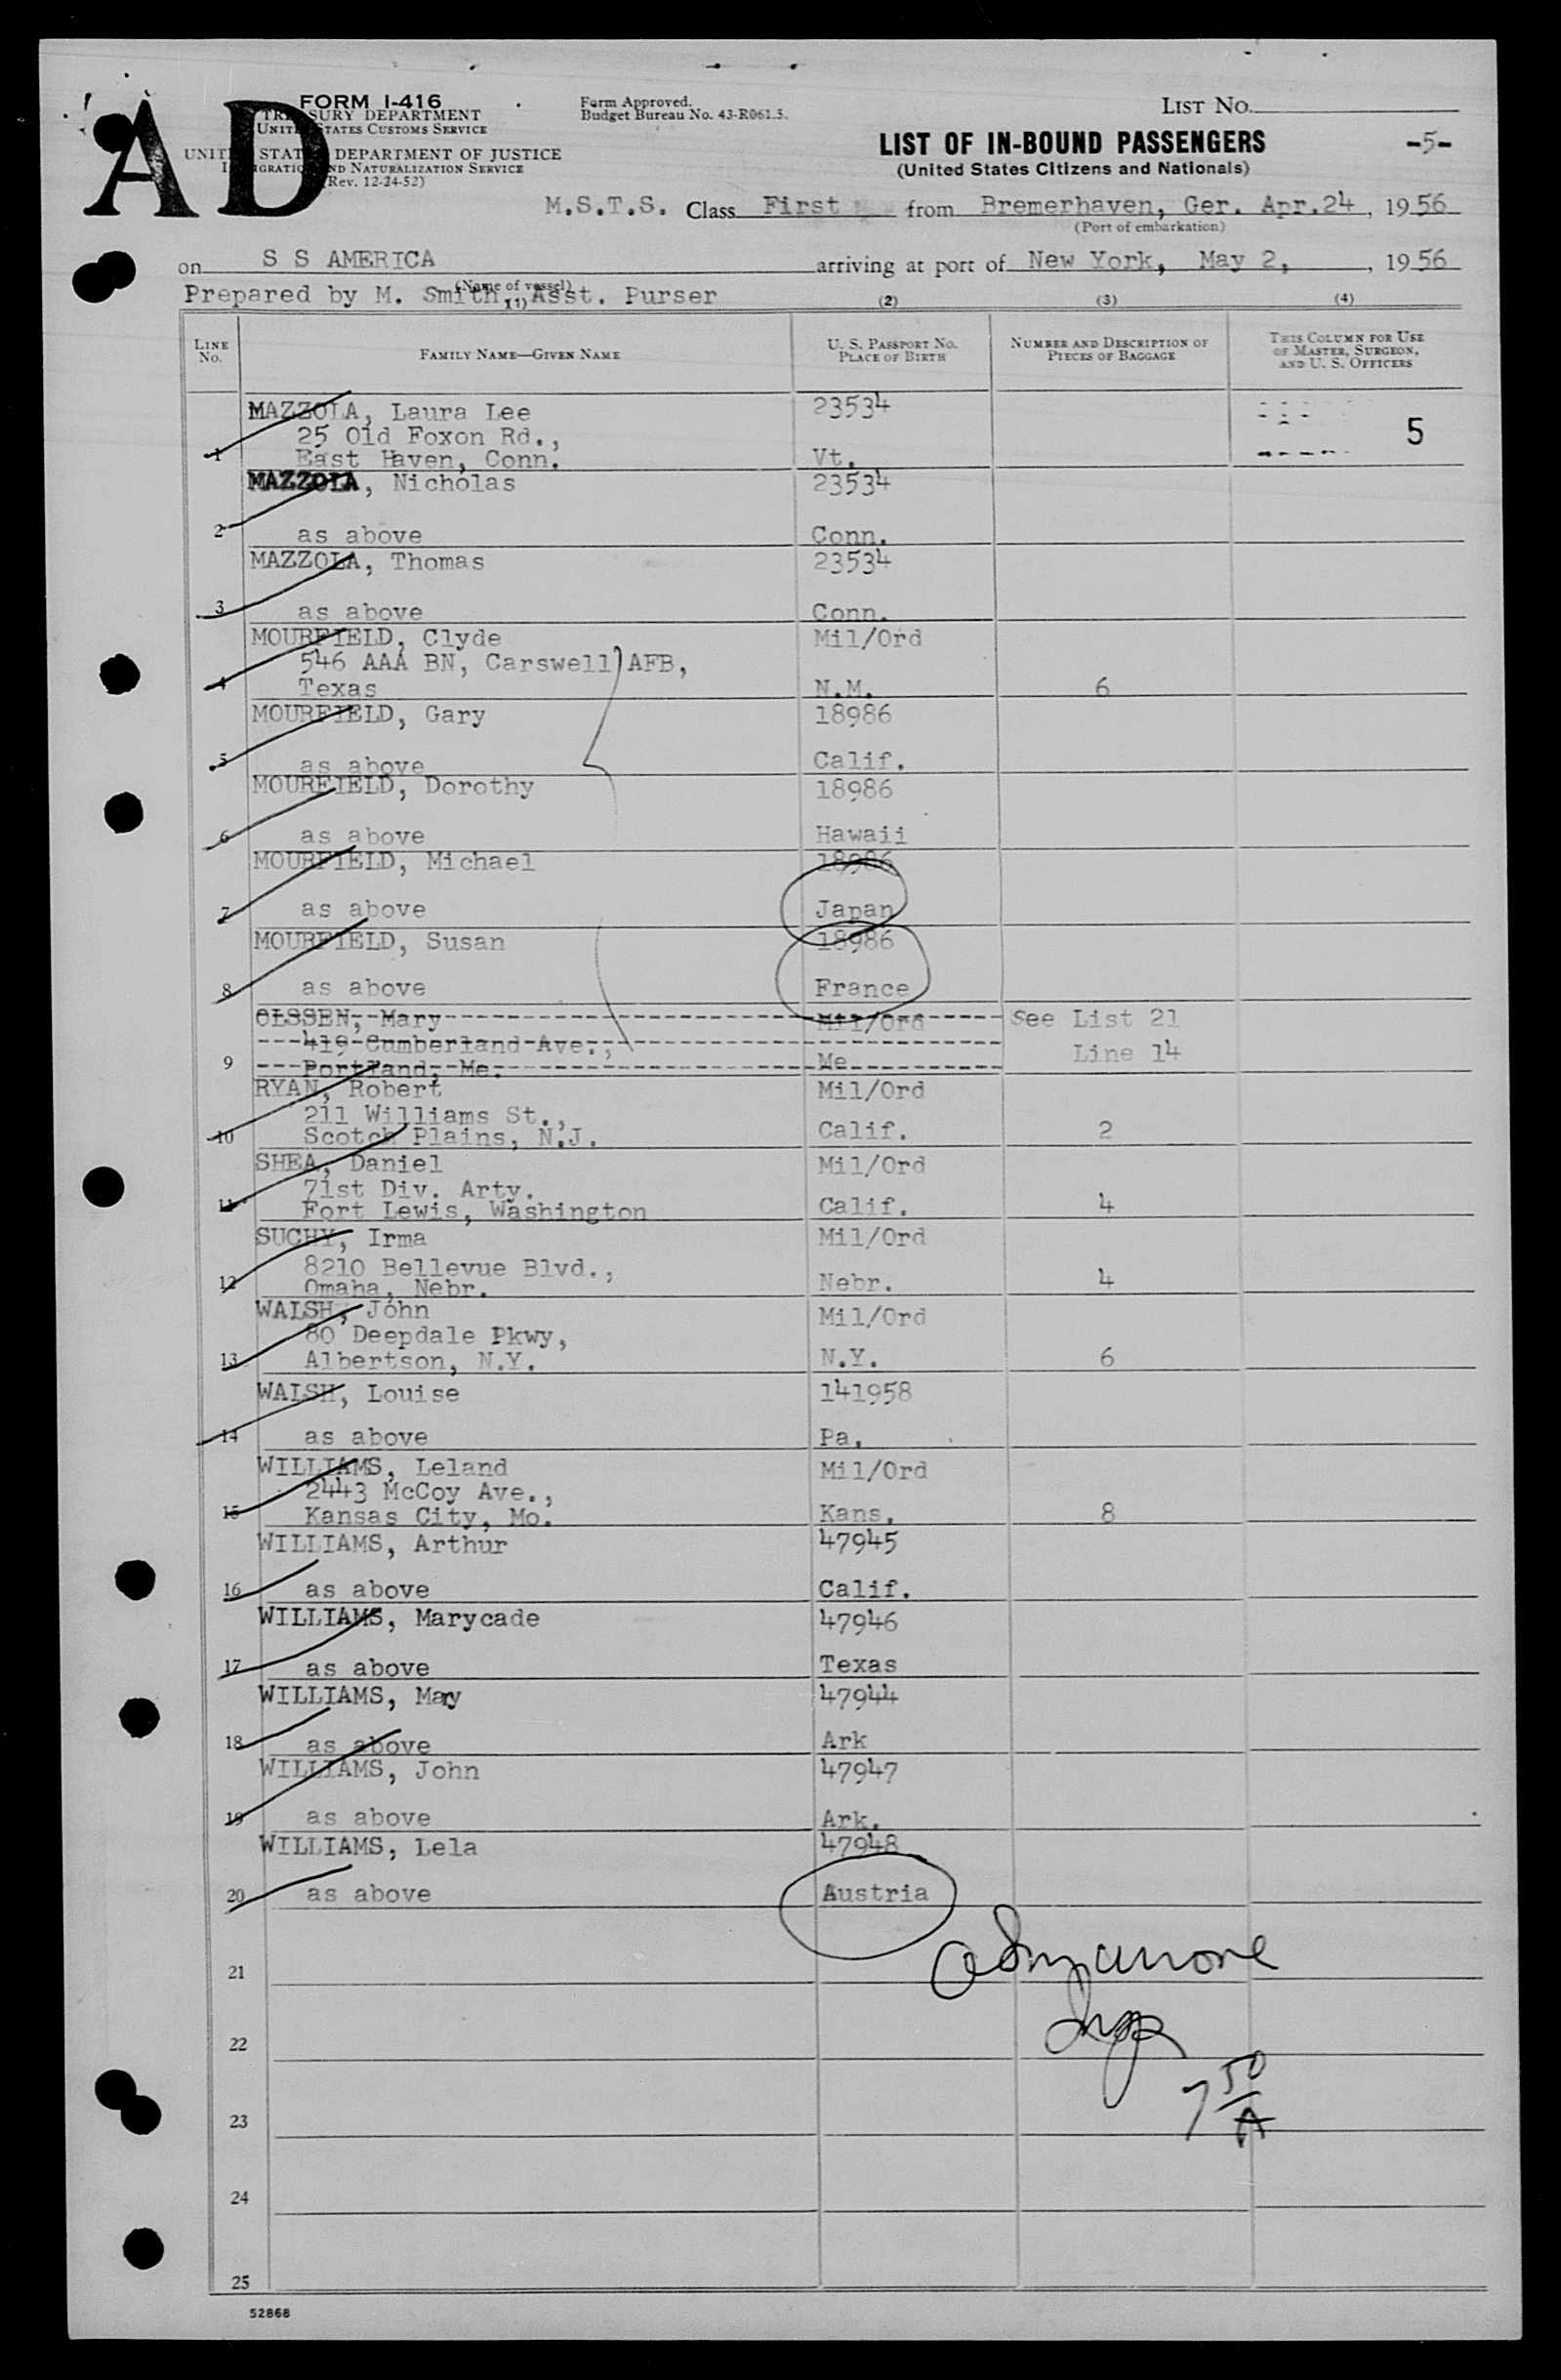 AD
FORM I-416
TREASURY DEPARTMENT
UNITED STATES CUSTOMS SERVICE
UNITED STATES DEPARTMENT OF JUSTICE
IMMIGRATION AND NATURALIZATION SERVICE
(Rev. 12-24-52)
Form Approved.
Budget Bureau No. 43-R061.5.
LIST NO.
LIST OF IN-BOUND PASSENGERS
(United States Citizens and Nationals)
-5-
M.S.T.S. Class First from Bremerhaven, Ger. Apr.24, 1956
(Port of embarkation)
on S S AMERICA arriving at port of New York, May 2, , 1956
(Name of vessel)
Prepared by M. Smith, Asst. Purser
(1) (2) (3) (4)
LINE NO. FAMILY NAME—GIVEN NAME U. S. PASSPORT NO. PLACE OF BIRTH NUMBER AND DESCRIPTION OF PIECES OF BAGGAGE THIS COLUMN FOR USE OF MASTER, SURGEON, AND U. S. OFFICERS
MAZZOLA, Laura Lee 23534
25 Old Foxon Rd., 5
1 East Haven, Conn. Vt.
MAZZOLA, Nicholas 23534
2 as above Conn.
MAZZOLA, Thomas 23534
3 as above Conn.
MOURFIELD, Clyde Mil/Ord
546 AAA BN, Carswell AFB,
4 Texas N.M. 6
MOURFIELD, Gary 18986
5 as above Calif.
MOURFIELD, Dorothy 18986
6 as above Hawaii
MOURFIELD, Michael 18986
7 as above Japan
MOURFIELD, Susan 18986
8 as above France
OLSSEN, Mary Mil/Ord See List 21
419 Cumberland Ave., Line 14
9 Portland, Me. Me
RYAN, Robert Mil/Ord
211 Williams St.,
10 Scotch Plains, N.J. Calif. 2
SHEA, Daniel Mil/Ord
71st Div. Arty.
11 Fort Lewis, Washington Calif. 4
SUCHY, Irma Mil/Ord
8210 Bellevue Blvd.,
12 Omaha, Nebr. Nebr. 4
WALSH, John Mil/Ord
80 Deepdale Pkwy,
13 Albertson, N.Y. N.Y. 6
WALSH, Louise 141958
14 as above Pa.
WILLIAMS, Leland Mil/Ord
2443 McCoy Ave.,
15 Kansas City, Mo. Kans. 8
WILLIAMS, Arthur 47945
16 as above Calif.
WILLIAMS, Marycade 47946
17 as above Texas
WILLIAMS, May 47944
18 as above Ark
WILLIAMS, John 47947
19 as above Ark.
WILLIAMS, Lela 47948
20 as above Austria
21
22
7 50/A
23
24
25
52868